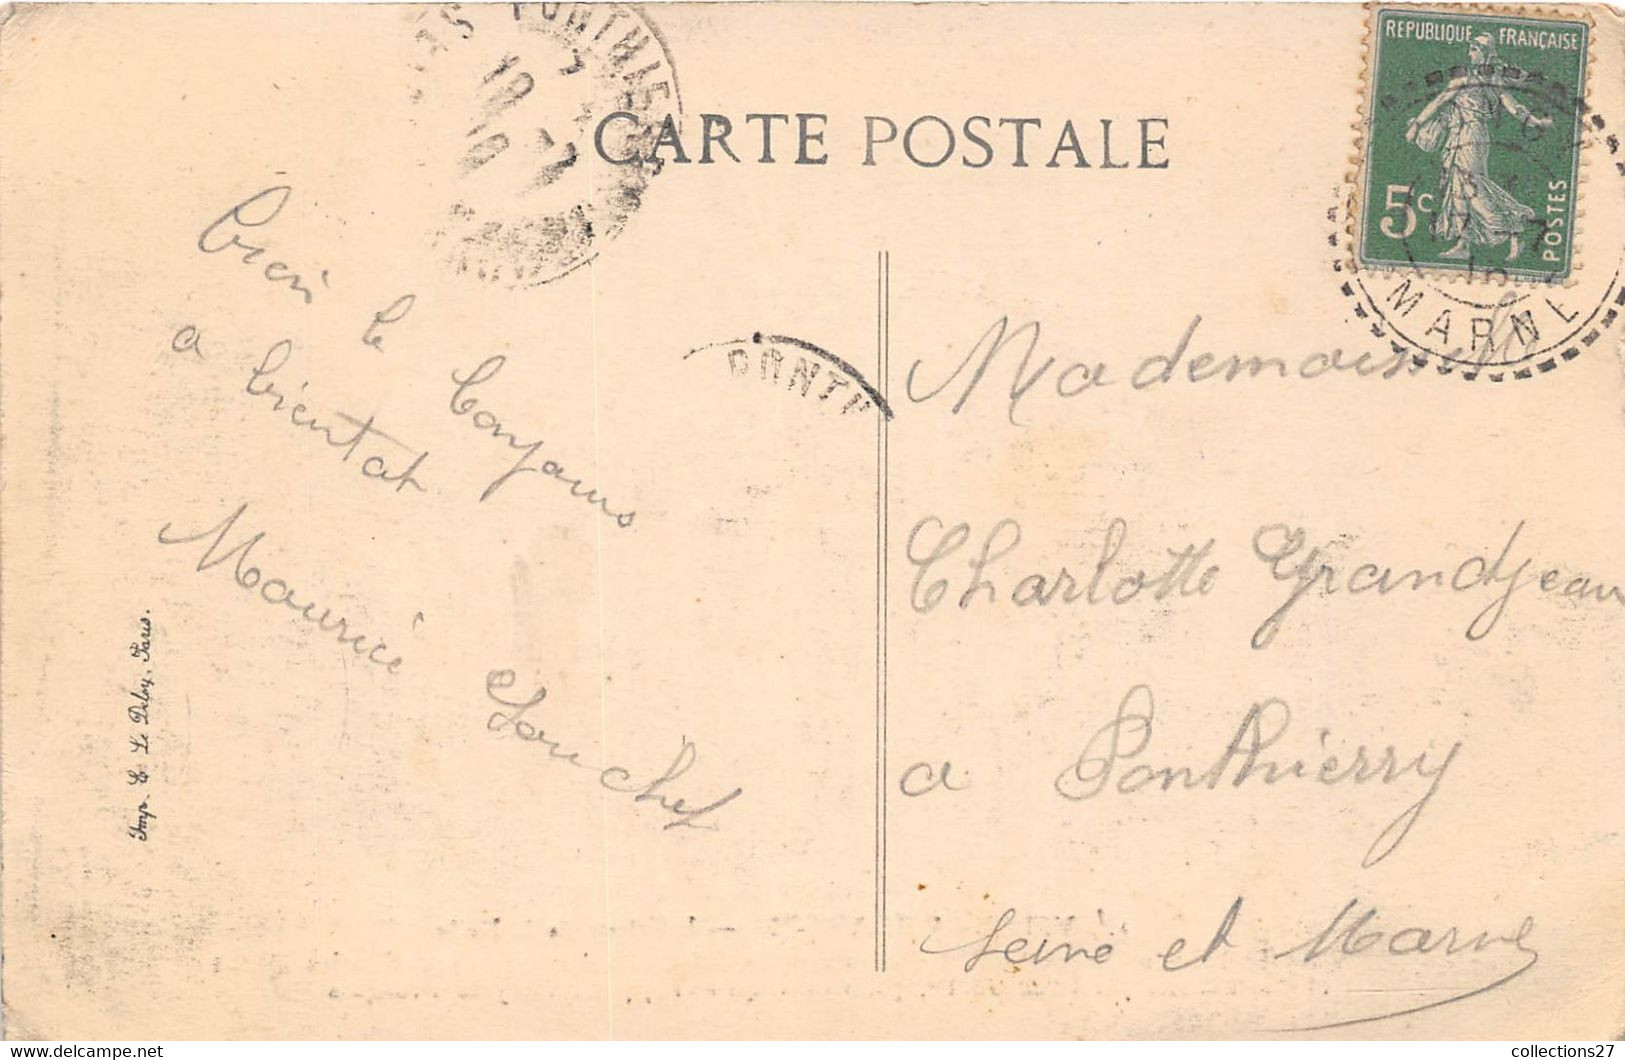 CARTE POSTALE
REPUBLIQUE FRANÇAISE
5c
POSTES
17 -7
16
MARNE
PONTHIE
18
PONTH
bien le
a bientot
Maurice
Souchet
Mademoiselle
Charlotte Grandjean
a Ponthierry
Seine et Marne
Imp. E. Le Deley, Paris.
collections27